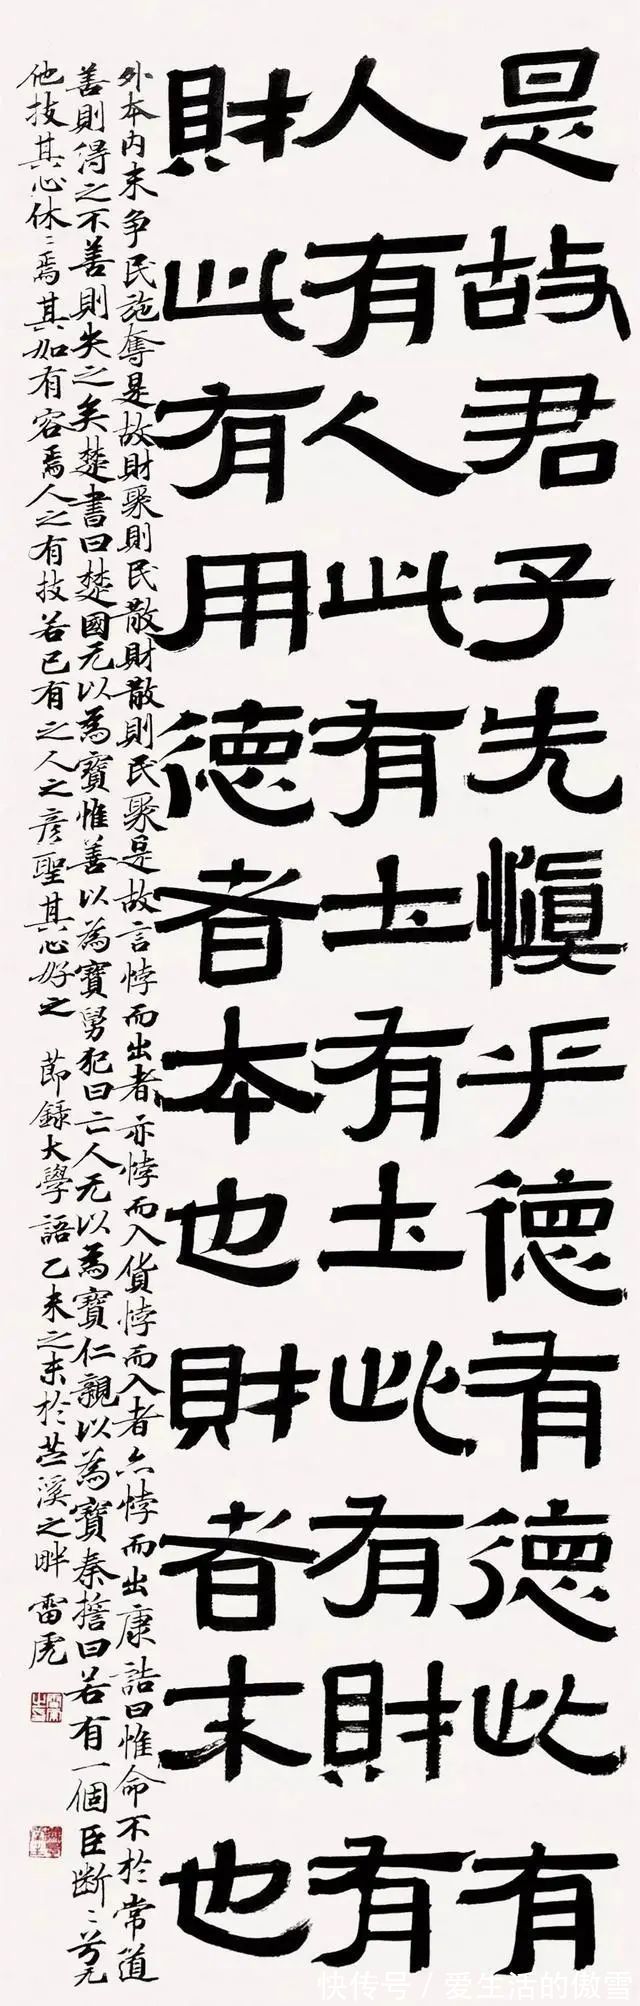 是故君子先慎乎德有德此有
人有人此有土有土此有財有
財此有用德者本也財者末也
外本内末争民施奪是故財聚則民散財散則民聚是故言悖而出者亦悖而入貨悖而入者亦悖而出康誥曰惟命不於常道
善則得之不善則失之矣楚書曰楚國无以為寶惟善以為寶舅犯曰亡人无以為寶仁親以為寶秦誓曰若有一個臣断〻兮无
他技其心休〻焉其如有容焉人之有技若己有之人之彦聖其心好之 節録大學語乙未之末於苕溪之畔雷虎
快传号/爱生活的傲雪